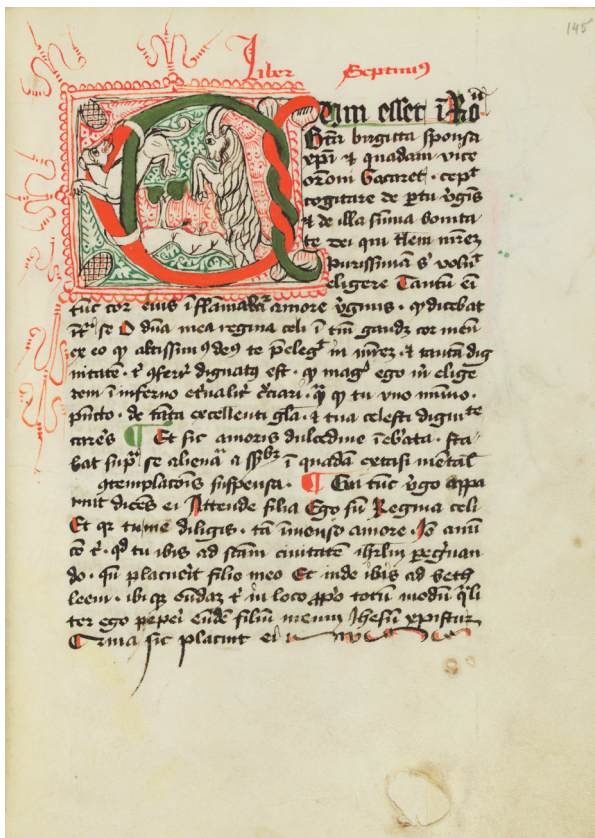 145
Liber Septimꝰ
Cum esset ĩ Ro
bt̃a birgitta sponsa
xp̃i ⁊ quadam vice
or̃oni vacaret · cepꝫ
cogitare de ptu v̓gĩs
⁊ de illa sũma bonita
te dei qui tłem mr̃em
purissimã sꝰ voluꝫ
eligere Tantũ eĩ
tũc cor eius ĩflamabat̃ amore v̓ginis · qꝫ dicebat
ĩtᵃ se O dña mea regina celi ĩ tm̃ gaudꝫ cor meũ
ex eo qꝫ altissimꝰ deꝰ te p̃elegꝫ in mr̃em · ⁊ tantã dig
nitatẽ · t̾ ꝯferr̃ dignatꝰ est · qꝫ magꝭ ego m̃ elige
rem ĩ inferno et̾nalit̾ c̾ciari · qᵃ qꝫ tu vno mĩmo ·
pũcto · de tãta excellenti gła · ⁊ tua celesti dignitᵗᵉ
carẽs ¶ Et sic amoris dulcedine ĩeb̾ata · sta
bat supᵃ se alienaᵃ a ĩ quadã extasi mẽtał
ꝯtemplacõis suspensa · ¶ Cui tũc v̓go appa
ruit dicẽs ei Attende filia Ego sũ Regina celi
Et qꝛ tu me diligis · tã ĩmenso amore · Jõ anũ
cõ t̾ · qꝫ tu ibis ad sc̃am ciuitatẽ ih̾rlm pegʳnan
do · qñ placuerit filio meo Et inde ibis ad beth
leem · ibi qꝫ on̄dã t̾ in loco ꝓp̃o totũ modũ qᵃli
ter ego pepeĩ eũdẽ filiũ meum Jhesũ xp̃istum
Qm̃a sic placuit ei